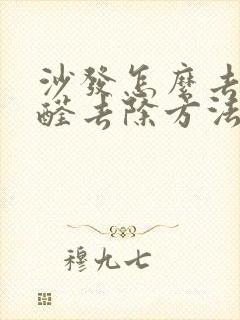 沙發怎麼去
醛去除方法
穆九七